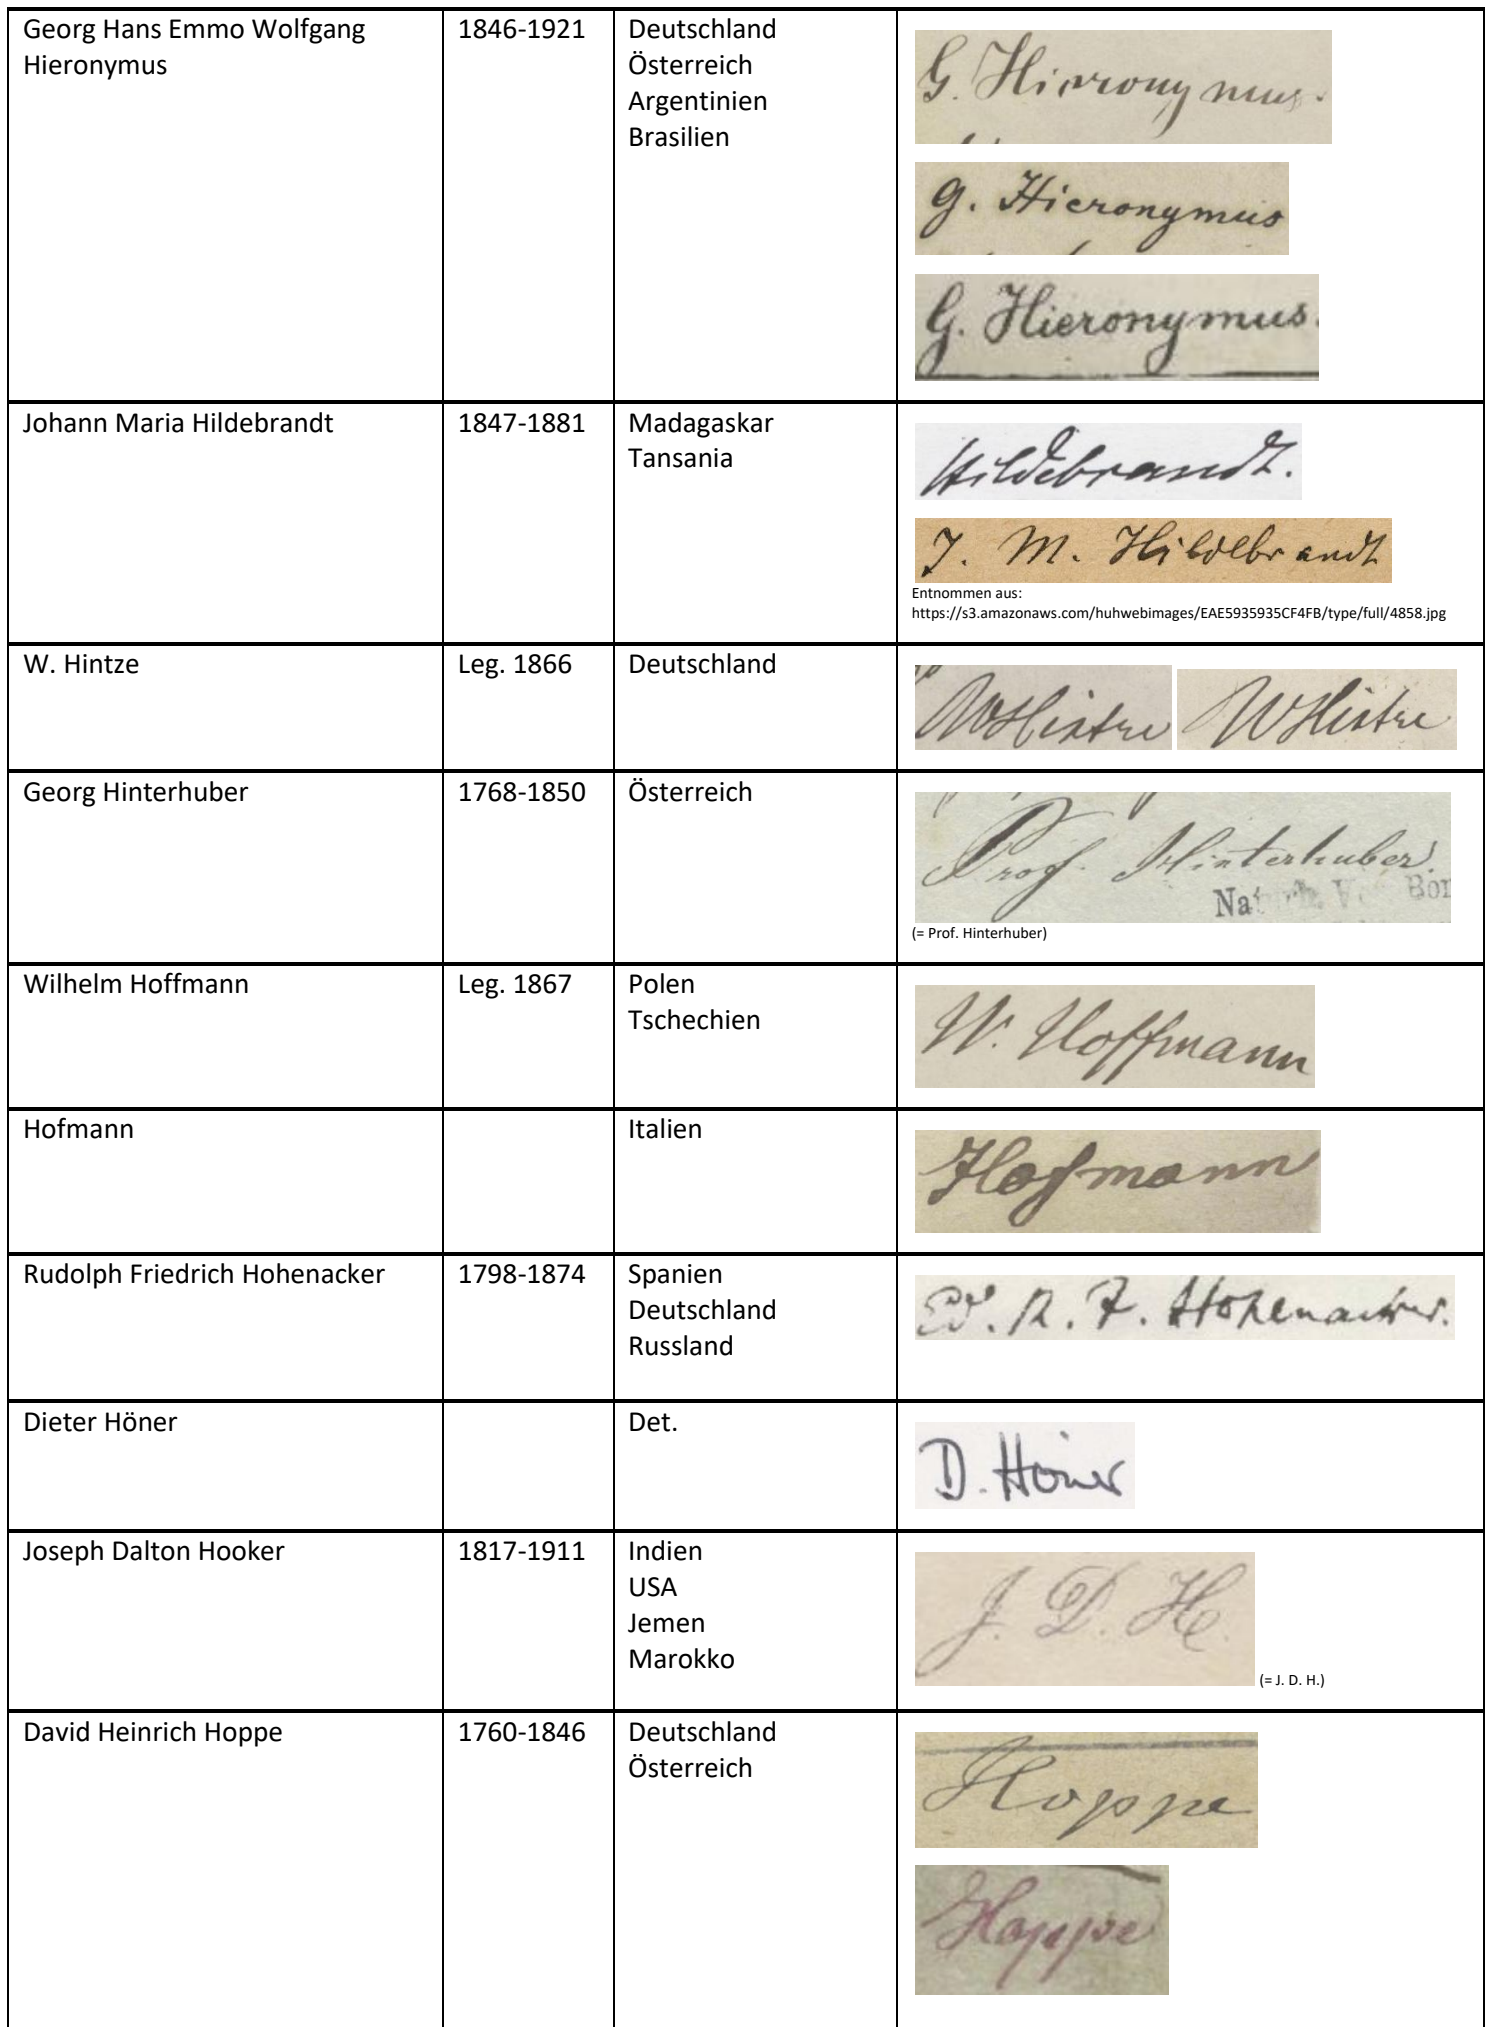 Georg Hans Emmo Wolfgang
Hieronymus
1846-1921
Deutschland
Österreich
Argentinien
Brasilien
G. Hieronymus.
G. Hieronymus
G. Hieronymus.
Johann Maria Hildebrandt
1847-1881
Madagaskar
Tansania
Hildebrandt.
J. M. Hildebrandt
Entnommen aus:
https://s3.amazonaws.com/huhwebimages/EAE5935935CF4FB/type/full/4858.jpg
W. Hintze
Leg. 1866
Deutschland
WHintze WHintze
Georg Hinterhuber
1768-1850
Österreich
Prof. Hinterhuber.
(= Prof. Hinterhuber)
Wilhelm Hoffmann
Leg. 1867
Polen
Tschechien
W. Hoffmann
Hofmann
Italien
Hofmann
Rudolph Friedrich Hohenacker
1798-1874
Spanien
Deutschland
Russland
R. F. Hohenacker.
Dieter Höner
Det.
D. Höner
Joseph Dalton Hooker
1817-1911
Indien
USA
Jemen
Marokko
J. D. H.
(= J. D. H.)
David Heinrich Hoppe
1760-1846
Deutschland
Österreich
Hoppe
Hoppe